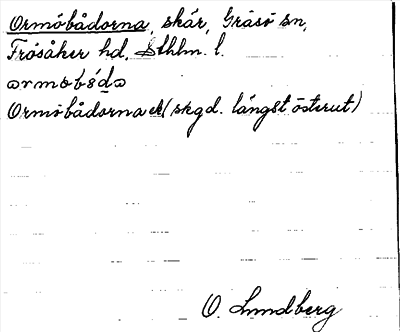 Ormöbådorna, skär, Gräsö sn,
Frösåker hd, Sthlm. l.
Ormöbådorna ek (skgd. längst österut)
O. Lundberg